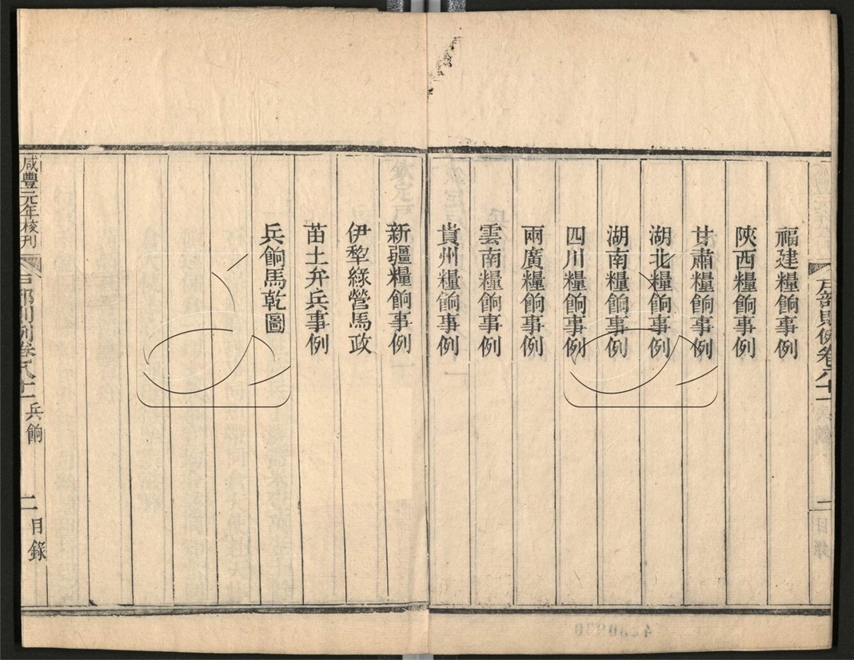 福建糧餉事例
陝西糧餉事例
甘肅糧餉事例
湖北糧餉事例
湖南糧餉事例
四川糧餉事例
兩廣糧餉事例
雲南糧餉事例
貴州糧餉事例
新疆糧餉事例
伊犂綠營馬政
苗土弁兵事例
兵餉馬乾圖
咸豐元年校刊
戶部則例卷八十二 兵餉 二 目錄